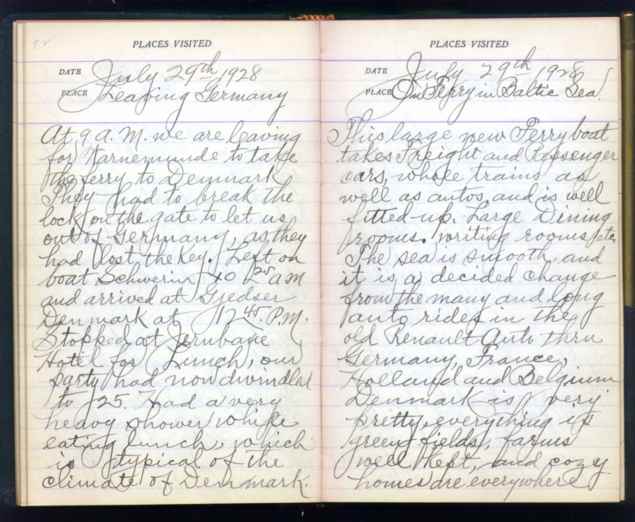 PLACES VISITED
DATE July 29th 1928
PLACE Leaving Germany
At 9 A.M. we are leaving
for Warnemunde to take
the ferry to Denmark
They had to break the
lock on the gate to let us
out of Germany, as they
had lost the key. Left on
boat Schwerin 10 25 am
and arrived at Gjedser
Denmark at 12 45 P.M.
Stopped at Jernbane
Hotel for Lunch, our
party had now dwindled
to 25. Had a very
heavy shower while
eating lunch, which
is typical of the
climate of Denmark.
PLACES VISITED
DATE July 29th 1928
PLACE On Ferry in Baltic Sea.
This large new Ferry boat
takes Freight and Passenger
cars, whole trains as
well as autos, and is well
fitted up. Large Dining
rooms. writing rooms etc.
The sea is smooth, and
it is a decided change
from the many and long
auto rides in the
old Renault Auto thru
Germany, France,
Holland and Belgium
Denmark is very
pretty, everything is
green, fields, farms
well kept, and cozy
homes are everywhere